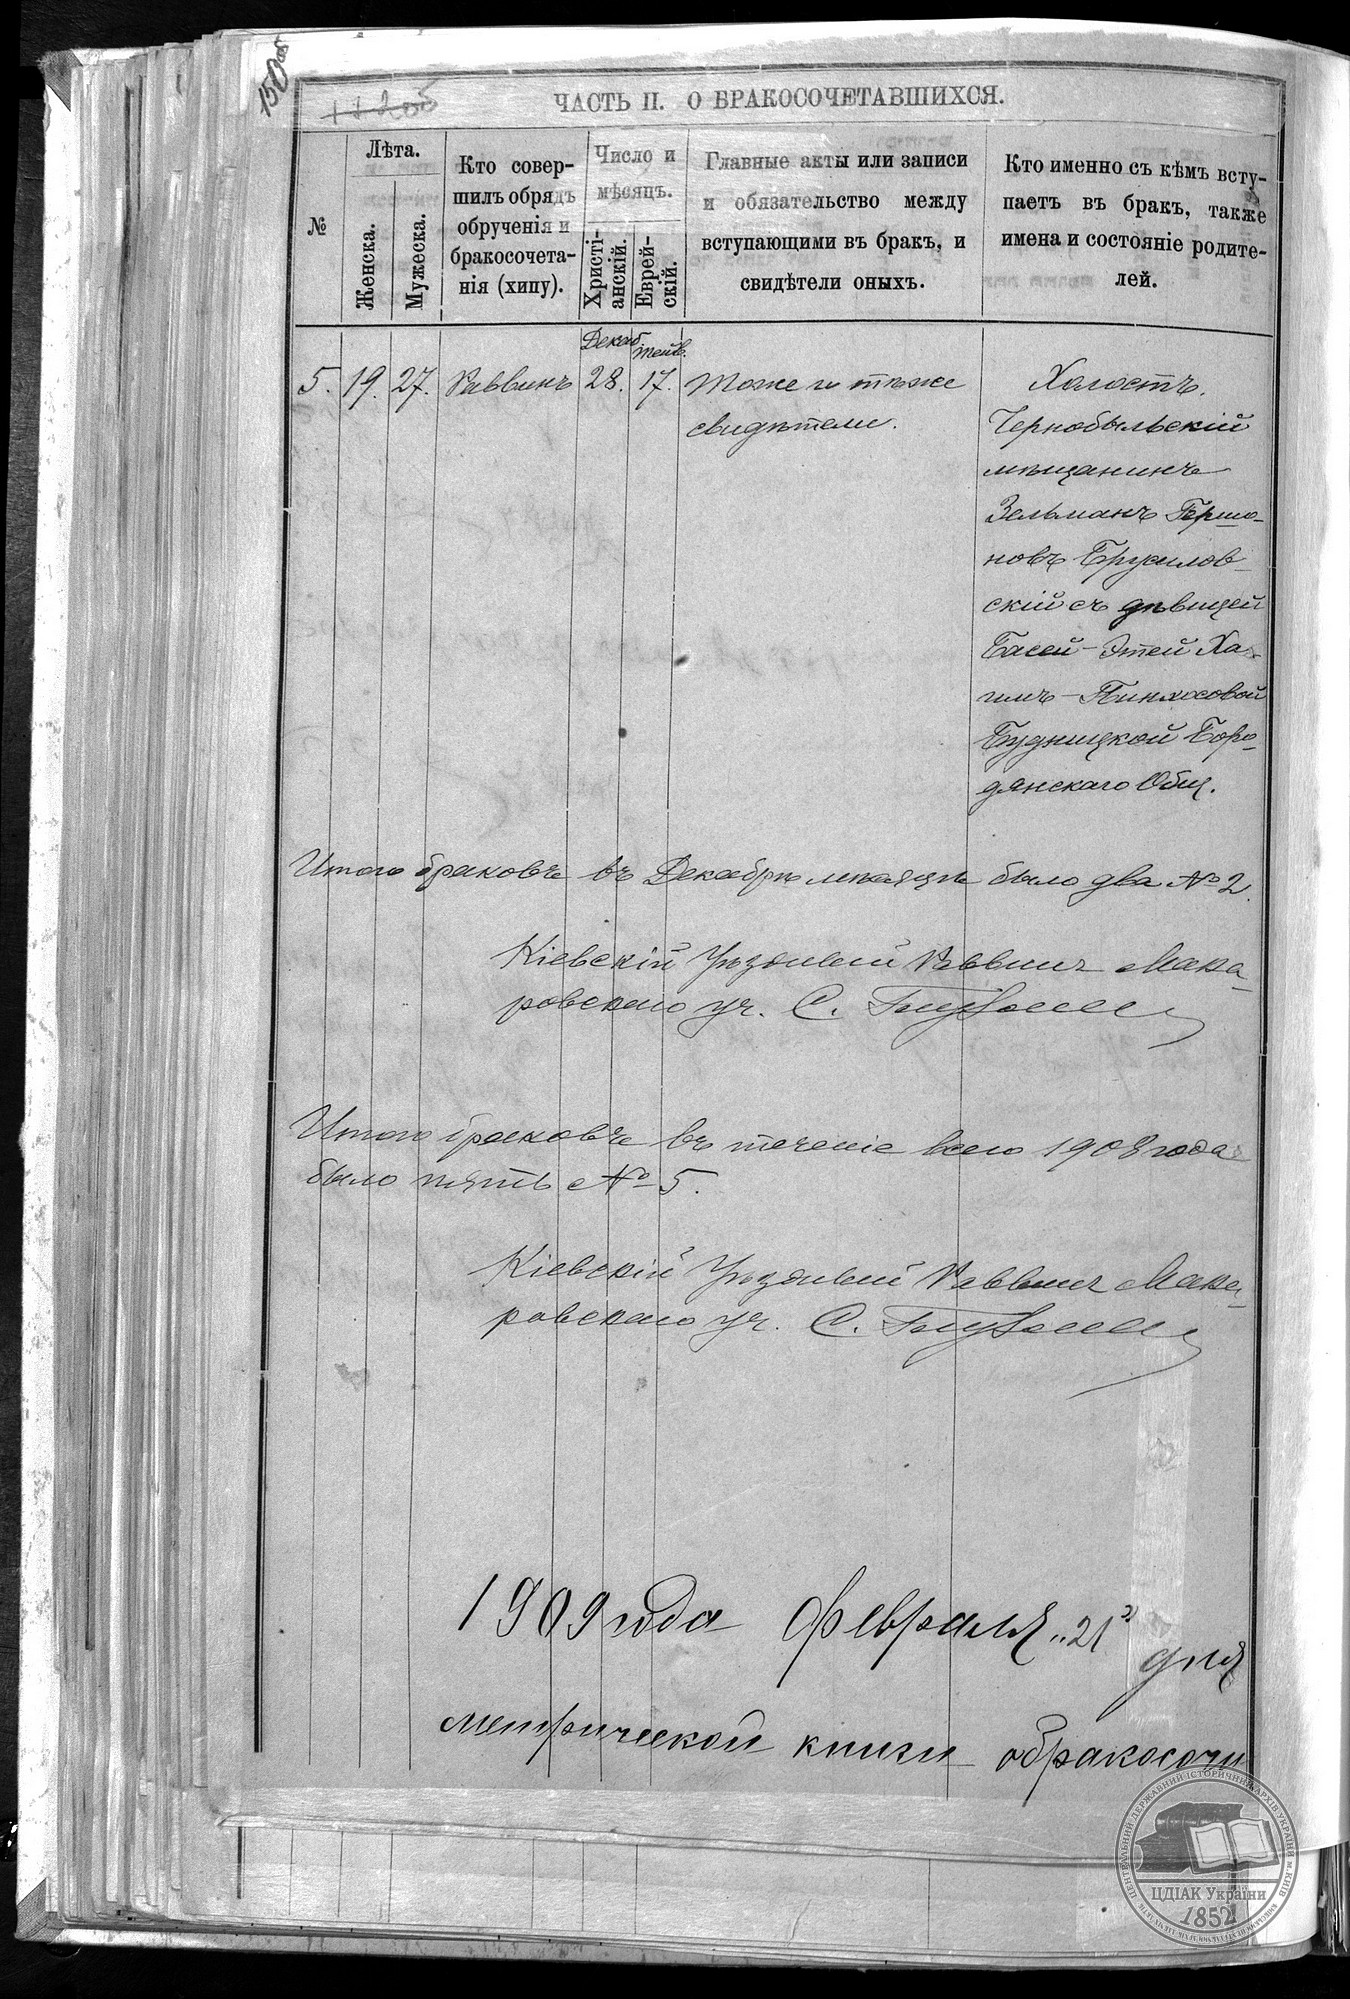 150об
112об
ЧАСТЬ II. О БРАКОСОЧЕТАВШИХСЯ.
№
Лѣта.
Женска.
Мужеска.
Кто совер-
шилъ обрядъ
обрученія и
бракосочета-
нія (хипу).
Число и
мѣсяцъ.
Христі-
анскій.
Еврей-
скій.
Главные акты или записи
и обязательство между
вступающими въ брак, и
свидѣтели оныхъ.
Кто именно съ кѣмъ всту-
паетъ въ бракъ, также
имена и состояніе родите-
лей.
Декаб. Тейв.
5. 19. 27. Раввинъ 28. 17. Тоже и тѣже
свидѣтели.
Холостъ.
Чернобыльскій
мѣщанинъ
Зельманъ Гершо-
новъ Брусилов-
скій съ дѣвицей
Басей-Этей Ха-
имъ-Пинхосовой
Будницкой Боро-
дянскаго Общ.
Итого браковъ въ Декабрѣ мѣсяцѣ было два № 2.
Кіевскій Уѣздный Раввинъ Мака-
ровскаго уч. С.
Итого браковъ въ теченіе всего 1908 года
было пять № 5.
Кіевскій Уѣздный Раввинъ Мака-
ровскаго уч. С.
1909 года Февраля „21" дня
метрической книги о бракосочи
ЦЕНТРАЛЬНИЙ ДЕРЖАВНИЙ ІСТОРИЧНИЙ АРХІВ УКРАЇНИ М. КИЇВ
ЦДІАК України
1852